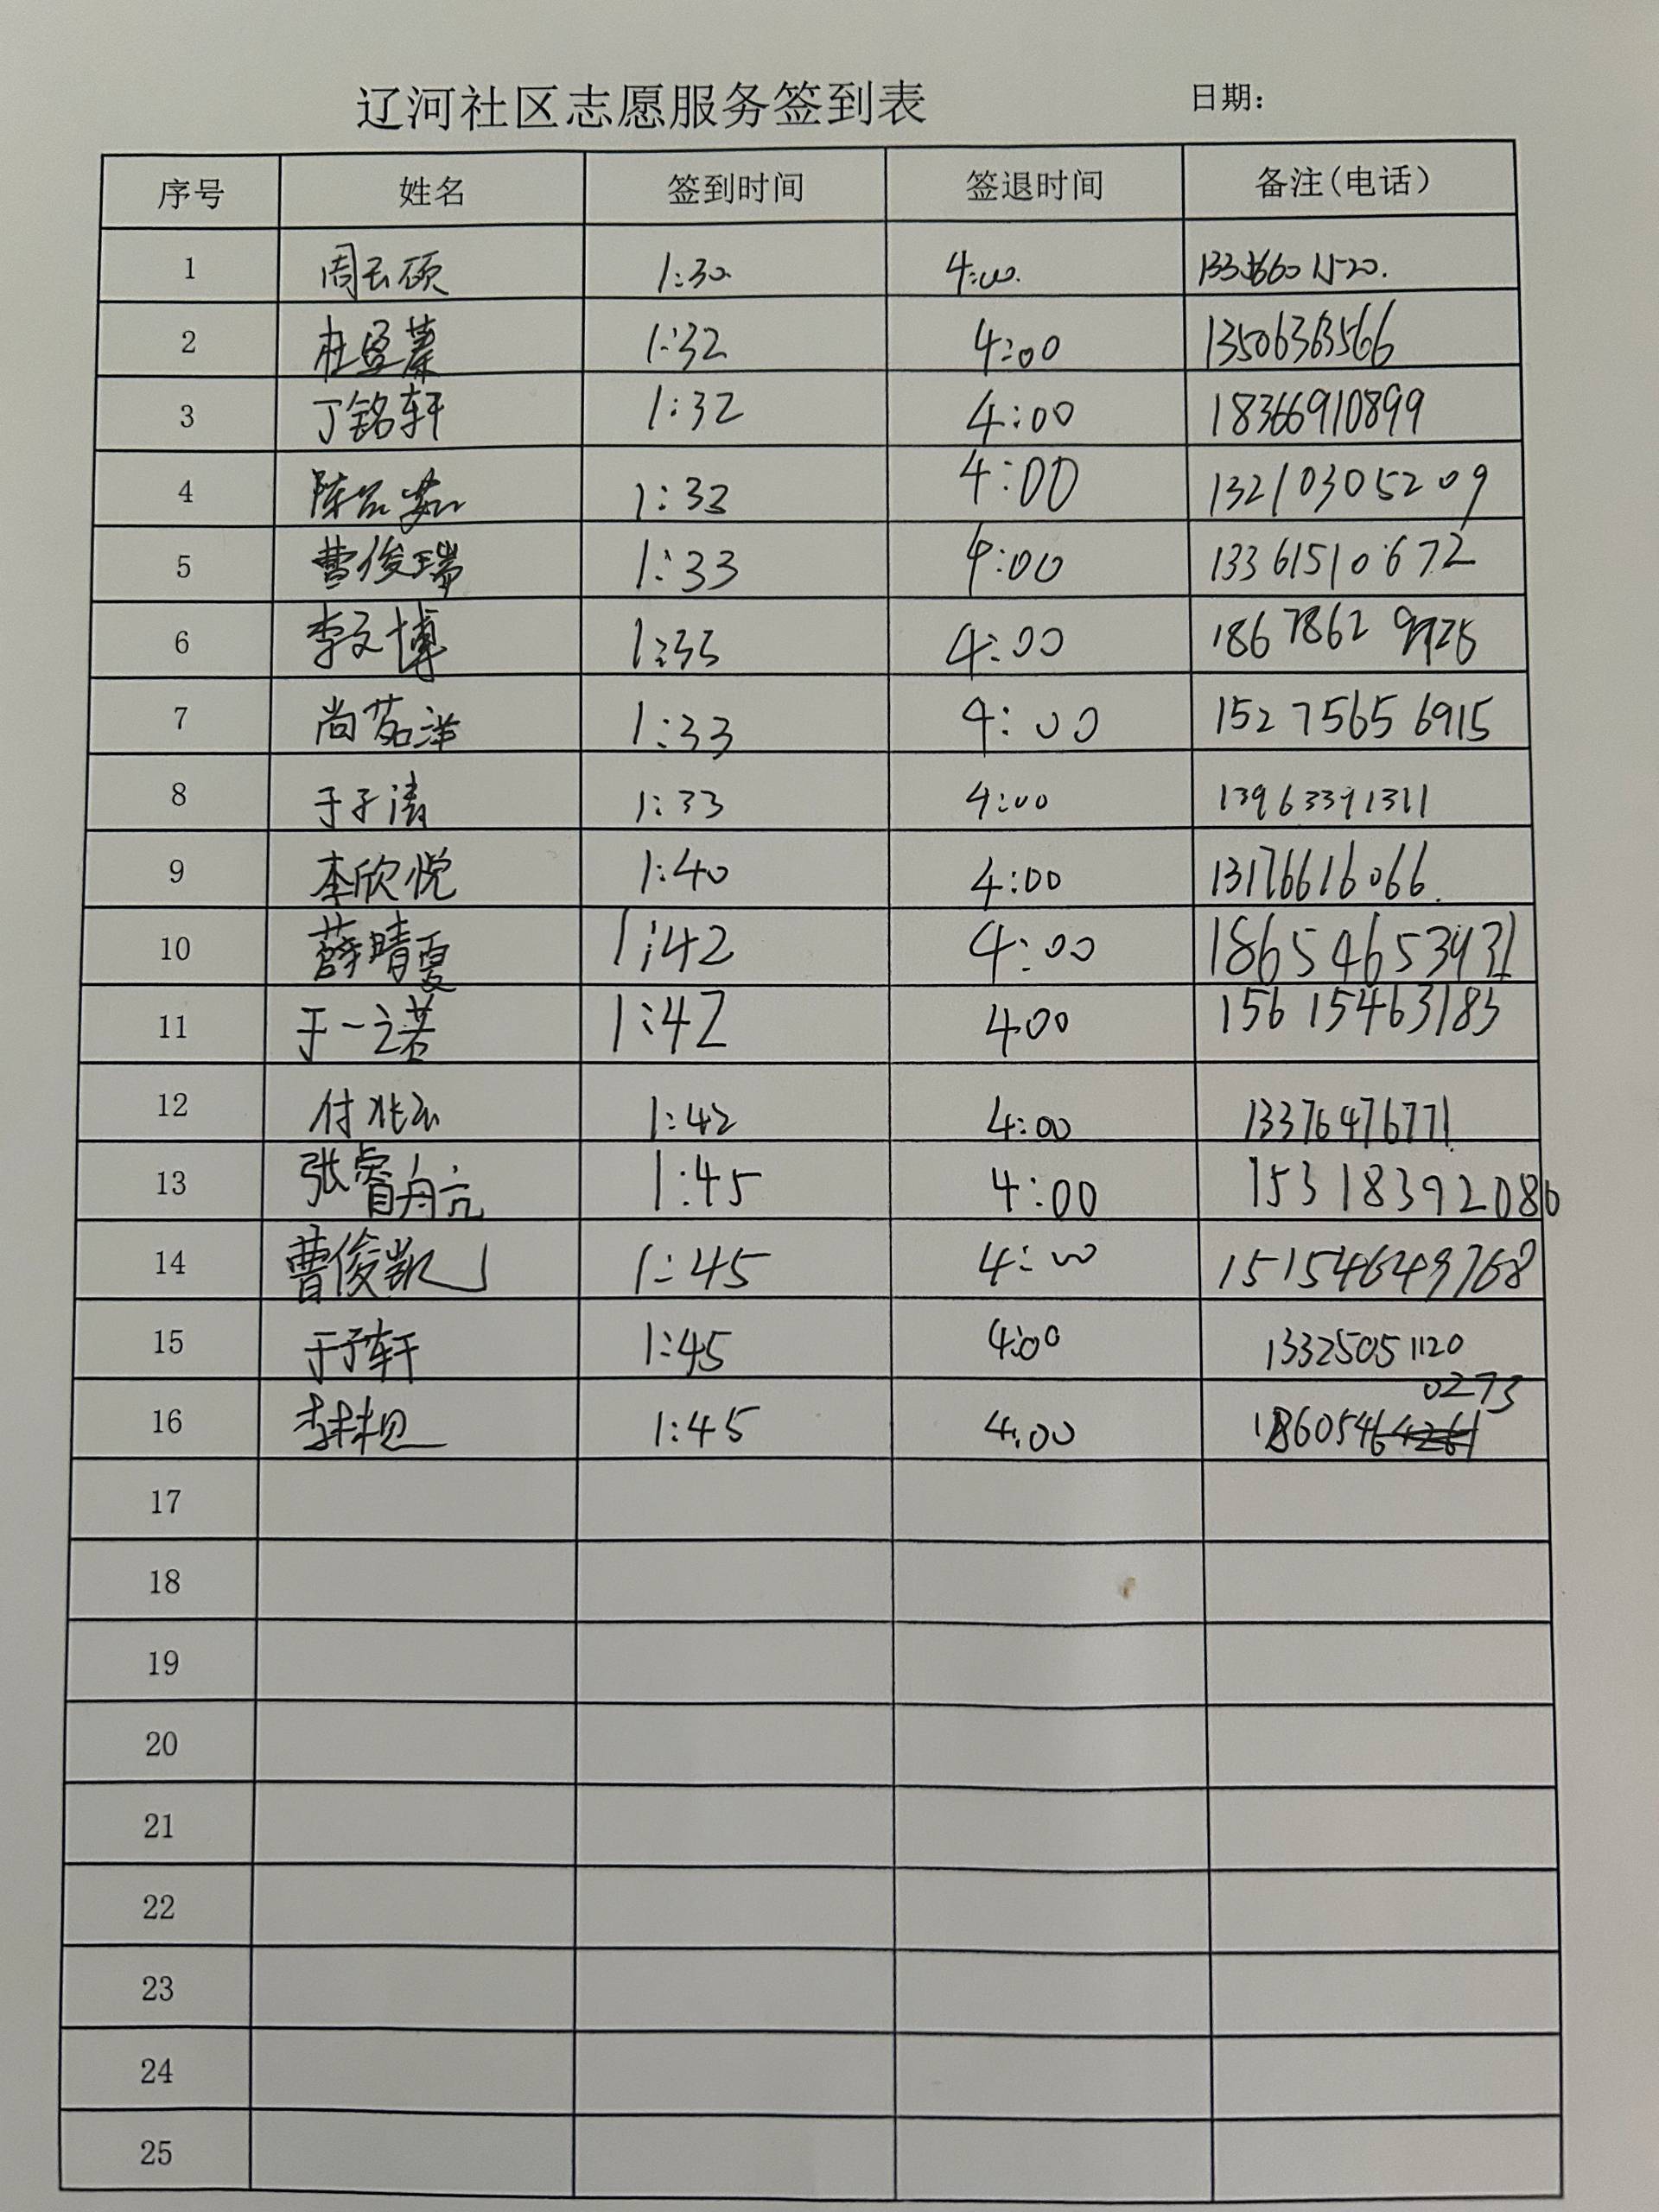 辽河社区志愿服务签到表 日期:
序号 姓名 签到时间 签退时间 备注(电话)
1 周玉硕 1:30 4:00. 1520.
2 1:32 4:00 13506363566
3 丁铭轩 1:32 4:00 18366910899
4 1:33 4:00 13210305209
5 曹俊瑞 1:33 4:00 13361510672
6 李文博 1:33 4:00 186 7862
7 尚茗洋 1:33 4:00 152 7565 6915
8 于子涛 1:33 4:00 13963391311
9 李欣悦 1:40 4:00 13176616066.
10 薛晴夏 1:42 4:00
11 于一诺 1:42 400 15615463183
12 付兆 1:42 4:00 13376476771
13 张睿航 1:45 4:00 15318392080
14 曹俊凯 1:45 4:00 15154649768
15 于子轩 1:45 4:00 13325051120
0273
16 李林恩 1:45 4:00 1860546
17
18
19
20
21
22
23
24
25